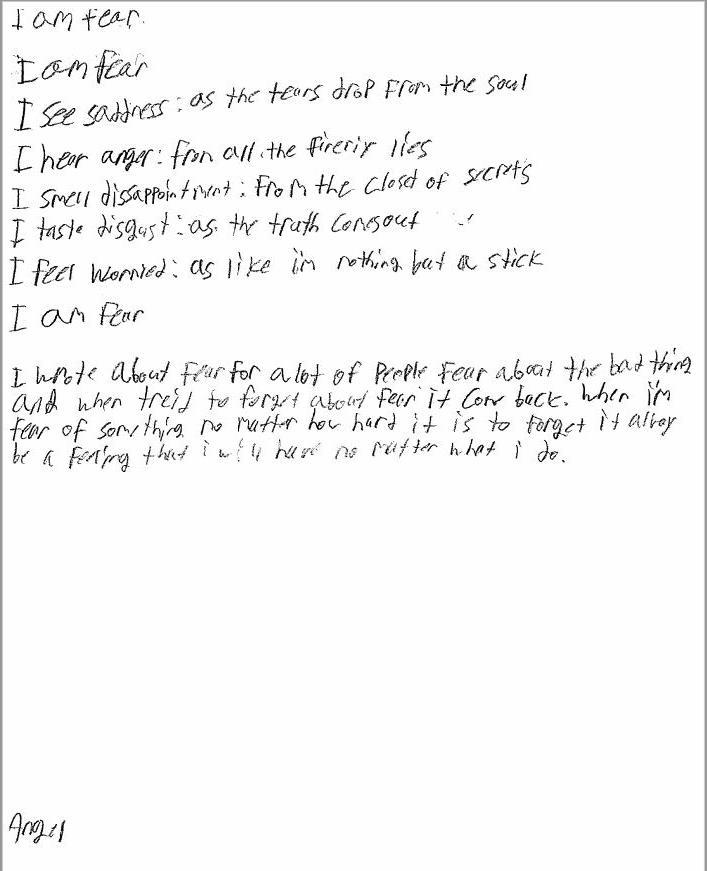 I am fear.
I am fear
I see saddness: as the tears drop from the soul
I hear anger: from all the fireriy lies
I smell dissappointment: from the closet of secrets
I taste disgust: as the truth comes out
I feel worried: as like i'm nothing but a stick
I am fear
I wrote about fear for a lot of people fear about the bad thing
and when treid to forget about fear it come back. When i'm
fear of something no matter how hard it is to forget it alway
be a feeling that i will have no matter what i do.
Angel